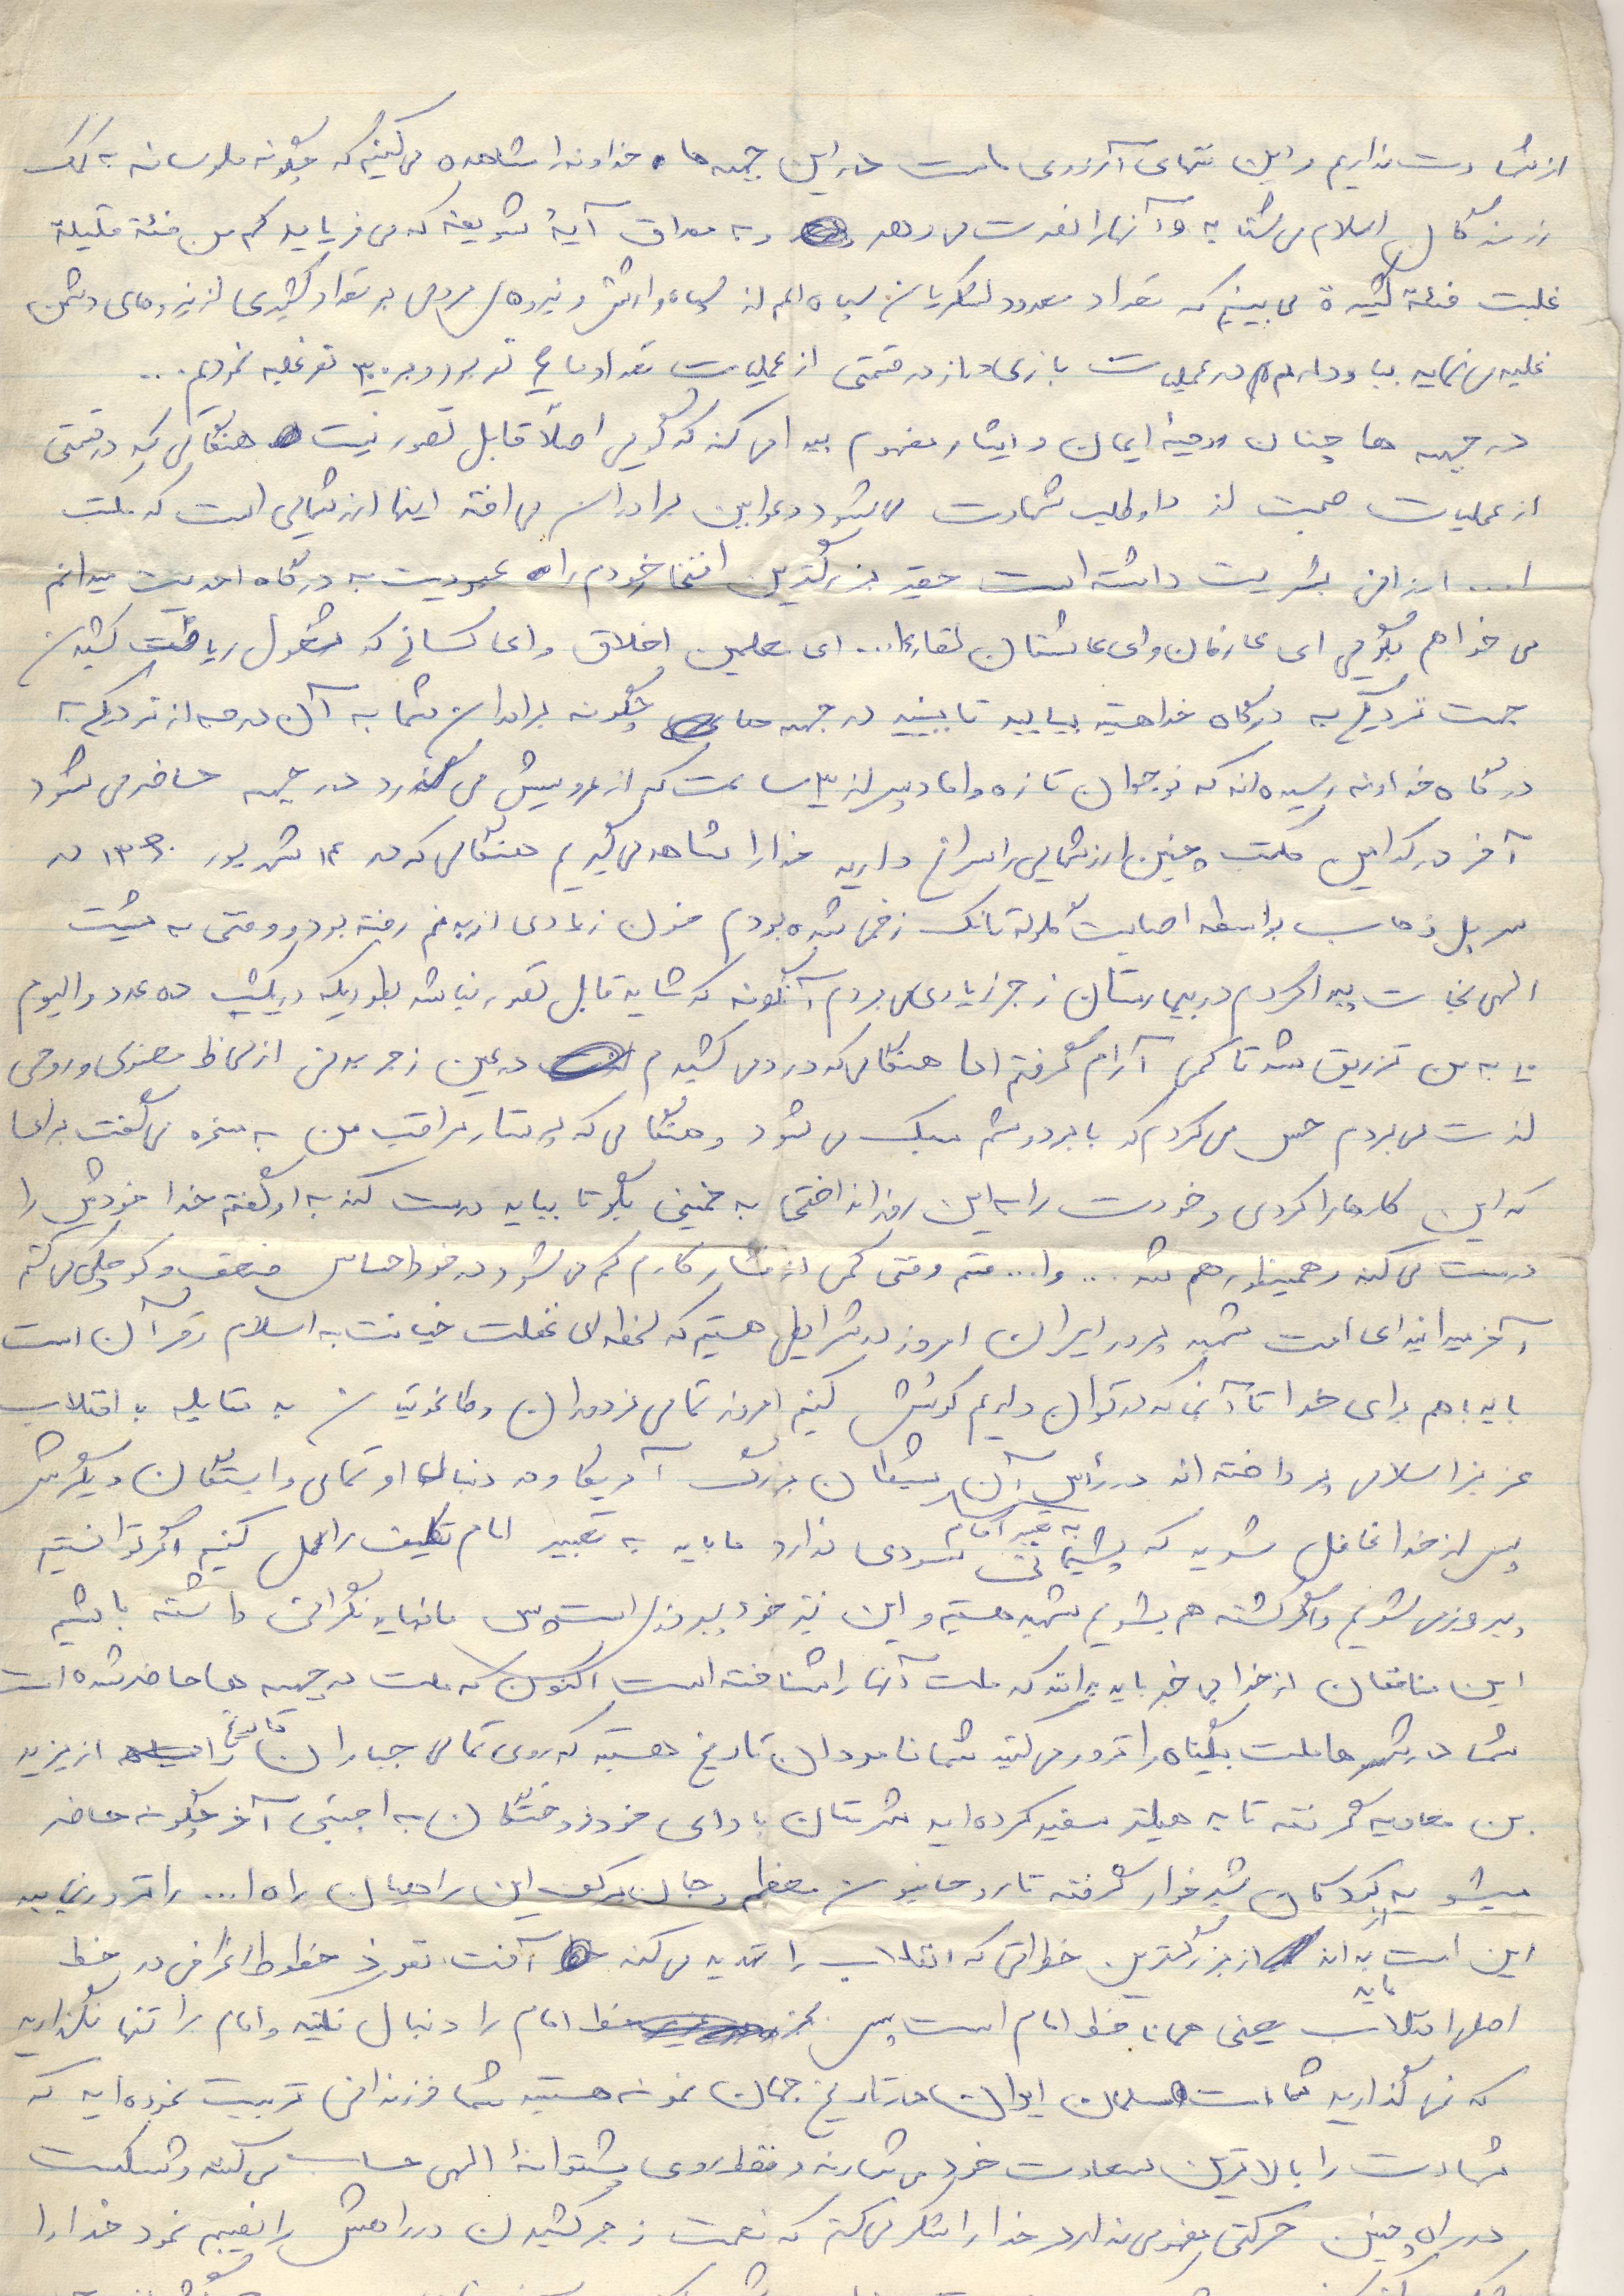 از شهادت نداریم و این منتهای آرزوی ماست در این جبهه ها خداوند را مشاهده می کنیم که چگونه ملموسانه به کمک
رزمندگان اسلام می شتابد و آنها را نصرت می دهد و به مصداق آیهٔ شریفه که می فرماید کم من فئة قلیلة
غلبت فئة کثیرة می بینیم که تعداد معدود لشکریان سپاه اعم از سپاه و ارتش و نیروهای مردمی بر تعداد کثیری از نیروهای دشمن
غلبه می نماید بیاد دارم در عملیات بازی دراز در قسمتی از عملیات تعداد ما نفر بود و بر ۳۰۰ نفر غلبه نمودیم...
در جبهه ها چنان روحیهٔ ایمان و ایثار مفهوم پیدا می کند که گویی اصلاً قابل تصور نیست هنگامی که در قسمتی
از عملیات صحبت از داوطلب شهادت می شود دعوا بین برادران می افتد اینها ارزشهایی است که ملت
ا... ارزانی بشریت داشته است حقیر بزرگترین افتخار خودم را عبودیت به درگاه احدیت میدانم
می خواهم بگویم ای عارفان و ای عاشقان لقاءا... ای معلمین اخلاق و ای کسانی که مشغول ریاضت کشیدن
جهت نزدیکی به درگاه خدا هستید بیایید تا ببینید در جبهه ها چگونه برادران شما به آن درجه از نزدیکی به
درگاه خداوند رسیده اند که نوجوان تازه داماد پس از ۳ ساعت که از عروسیش می گذرد در جبهه حاضر می شود
آخر در کدامین مکتب چنین ارزشهایی را سراغ دارید خدا را شاهد می گیریم هنگامی که در ۱۴ شهریور ۱۳۶۰ در
سرپل ذهاب بواسطه اصابت گلوله تانک زخمی شده بودم خون زیادی از بدنم رفته بود و وقتی به مشیت
الهی نجات پیدا کردم در بیمارستان زجر زیادی می بردم آنگونه که شاید قابل تصور نباشد بطوریکه در یکشب ده عدد والیوم
۱۰ به من تزریق شد تا کمی آرام گرفتم اما هنگامی که درد می کشیدم در عین زجر بدنی از لحاظ معنوی و روحی
لذت می بردم حس می کردم که بار دوشم سبک می شود و هنگامی که پرستار مراقب من به سخره می گفت برای
که این کارها را کردی و خودت را به این روز انداختی به خمینی بگو تا بیاید درست کند به او گفتم خدا خودش را
درست می کند و همینطور هم شد... وا... قسم وقتی کمی از فشار کارم کم می شود در خود احساس ضعف و کوچکی می کنم
آخر میدانید ای امت شهید پرور ایران امروز در شرایطی هستیم که لحظه ای غفلت خیانت به اسلام و قرآن است
باید با هم برای خدا تا آنجا که در توان داریم کوشش کنیم امروز تمامی مزدوران و طاغوتیان به مقابله با انقلاب
عزیز اسلامی پرداخته اند در رأس آن شیطان بزرگ آمریکا و در دنبال او تمامی وابستگان دیگرش
پس از خدا غافل نشوید که پشیمانی سودی ندارد ما باید به تعبیر امام تکلیف را عمل کنیم اگر توانستیم
به تعبیر امام
پیروز می شویم و اگر کشته هم بشویم شهید هستیم و این نیز خود پیروزی است پس ما نباید نگرانی داشته باشیم
این منافقان از خدا بی خبر باید بدانند که ملت آنها را شناخته است اکنون که ملت در جبهه ها حاضر شده است
شما در شهرها ملت بیگناه را ترور می کنید شما نامردان تاریخ هستید که روی تمامی جباران تاریخ را از یزید
بن معاویه گرفته تا به هیتلر سفید کرده اید شرمتان باد ای خودفروختگان به اجنبی آخر چگونه حاضر
میشوید از کودکان شیرخوار گرفته تا روحانیون معظم و جان برکف این راهیان راه ا... را ترور نمایید
این است باید از بزرگترین خطراتی که انقلاب را تهدید می کند آفت نفوذ خطوط انحرافی در خط
اصلی انقلاب یعنی همانا خط امام است پس خط امام را دنبال کنید و امام را تنها نگذارید
که نمی گذارید شما امت مسلمان ایران در تاریخ جهان نمونه هستید شما فرزندانی تربیت نموده اید که
شهادت را بالاترین سعادت خود می شمارند و فقط روی پشتوانهٔ الهی حساب می کنند و شکست
در راه چنین حرکتی مفهومی ندارد خدا را شکر می کنم که نعمت زجر کشیدن در راهش را نصیبم نمود خدا را